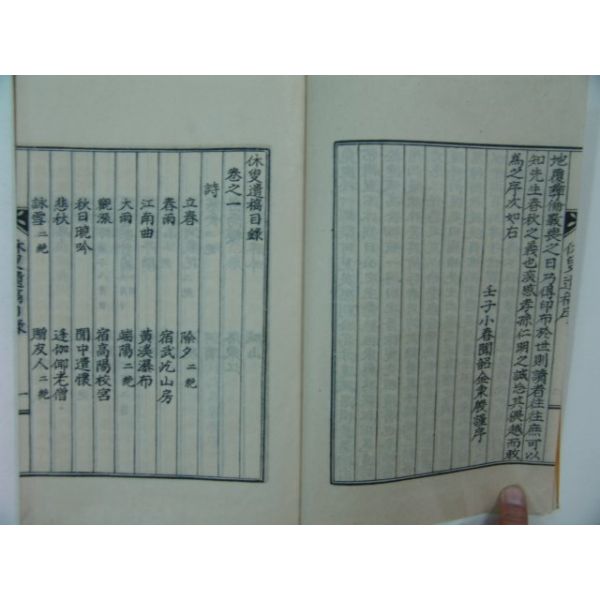 休叟遺稿序
地覆
之日乃得印布於世則讀者往往庶可以
知先生春秋之義也深感孝孫仁明之誠忘其僭越而敢
爲之序次如右
壬子小春聞韶金秉殷謹序
休叟遺稿目錄
卷之一
詩
立春
除夕二絶
春雨
宿武屹山房
江南曲
黃溪瀑布
大雨
端陽二絶
觀漲
宿高陽校宮
秋日晚吟
閒中遣懷
悲秋
逢伽倻老僧
詠雪二絶
贈友人二絶
休叟遺稿目錄
一